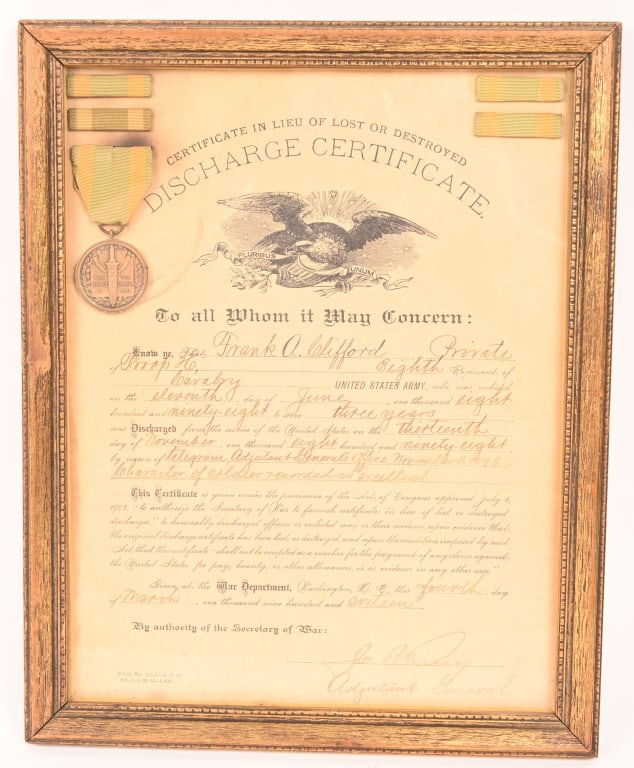 CERTIFICATE IN LIEU OF LOST OR DESTROYED
DISCHARGE CERTIFICATE.
PLURIBUS
UNUM
To all Whom it May Concern:
Know ye, That Frank A. Clifford, Private
of Troop H, Eighth Regiment of
Cavalry UNITED STATES ARMY, who was enlisted
on the eleventh day of June, one thousand eight
hundred and ninety-eight, to serve three years,
was Discharged from the service of the United States on the thirteenth
day of November, one thousand eight hundred and ninety eight
by reason of telegram, Adjutant General's Office, November
Character of soldier recorded as excellent.
This Certificate is given under the provisions of the Act of Congress approved July 1,
1902, "to authorize the Secretary of War to furnish certificates in lieu of lost or destroyed
discharges," to honorably discharged officers or enlisted men or their widows, upon evidence that
the original discharge certificate has been lost or destroyed, and upon the condition imposed by said
Act that this certificate "shall not be accepted as a voucher for the payment of any claim against
the United States for pay, bounty, or other allowances, or as evidence in any other case."
Given at the War Department, Washington, D. C., this fourth day
of March, one thousand nine hundred and sixteen.
By authority of the Secretary of War:
Adjutant General
Form No.